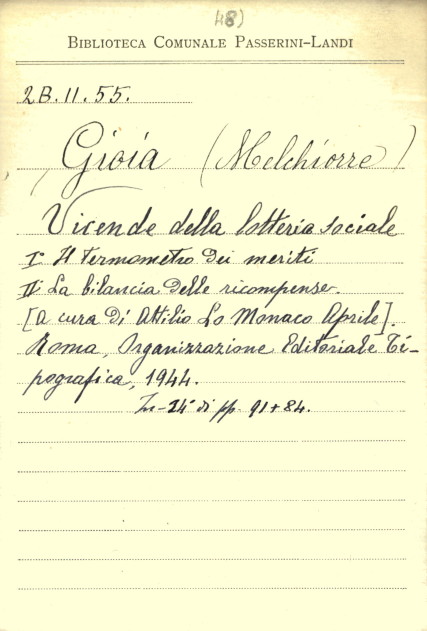 48)
BIBLIOTECA COMUNALE PASSERINI-LANDI
2B.II.55.
Gioia (Melchiorre)
Vicende della lotteria sociale
I° Il termometro dei meriti
II° La bilancia delle ricompense.
[a cura di Attilio Lo Monaco Aprile].
Roma, Organizzazione Editoriale Ti-
pografica, 1944.
In-24° di pp. 91+84.